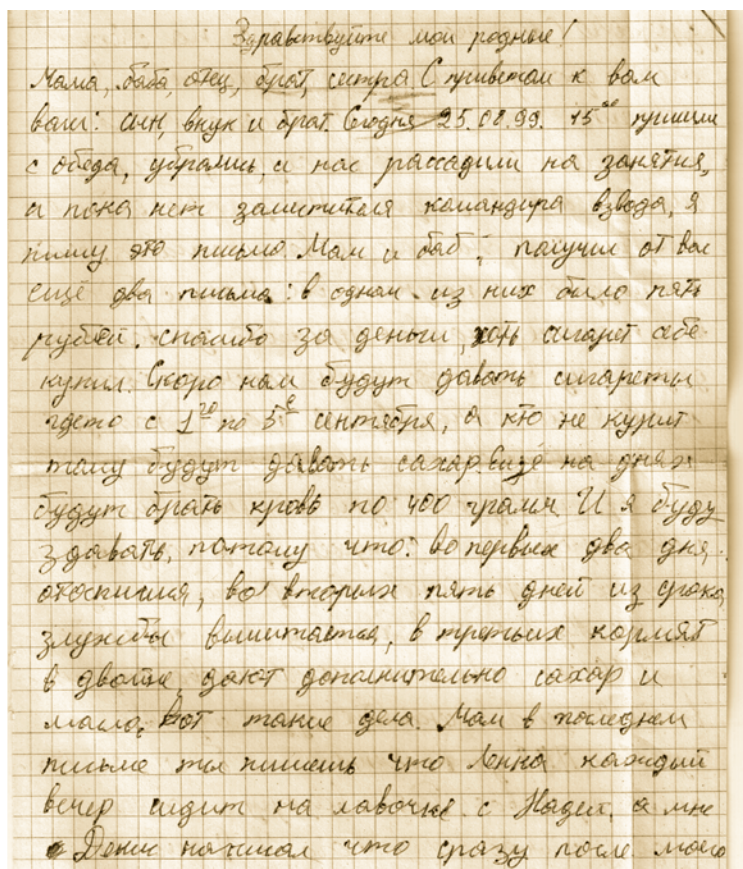 Здравствуйте мои родные!
Мама, баба, отец, брат, сестра С приветом к вам
ваш: сын, внук и брат. Сегодня 25.08.99. 15⁰⁰ пришли
с обеда, убрались, и нас рассадили на занятия,
а пока нет заместителя командира взвода, я
пишу это письмо. Мам и баб, получил от вас
ещё два письма: в одном из них было пять
рублей. спасибо за деньги, хоть сигарет себе
купил. Скоро нам будут давать сигареты
гдето с 1²⁰ по 5ᵉ сентября, а кто не курит
тому будут давать сахар. Ещё на днях
будут брать кровь по 400 грамм И я буду
здавать, потому что: во первых два дня
отоспимся, во вторых пять дней из срока
злужбы вычитается, в третьих кормят
в двойне, дают дополнительно сахар и
масло, вот такие дела. Мам в последнем
письме ты пишешь что Ленка каждый
вечер сидит на лавочке с Надей, а мне
Денис написал что сразу после моего